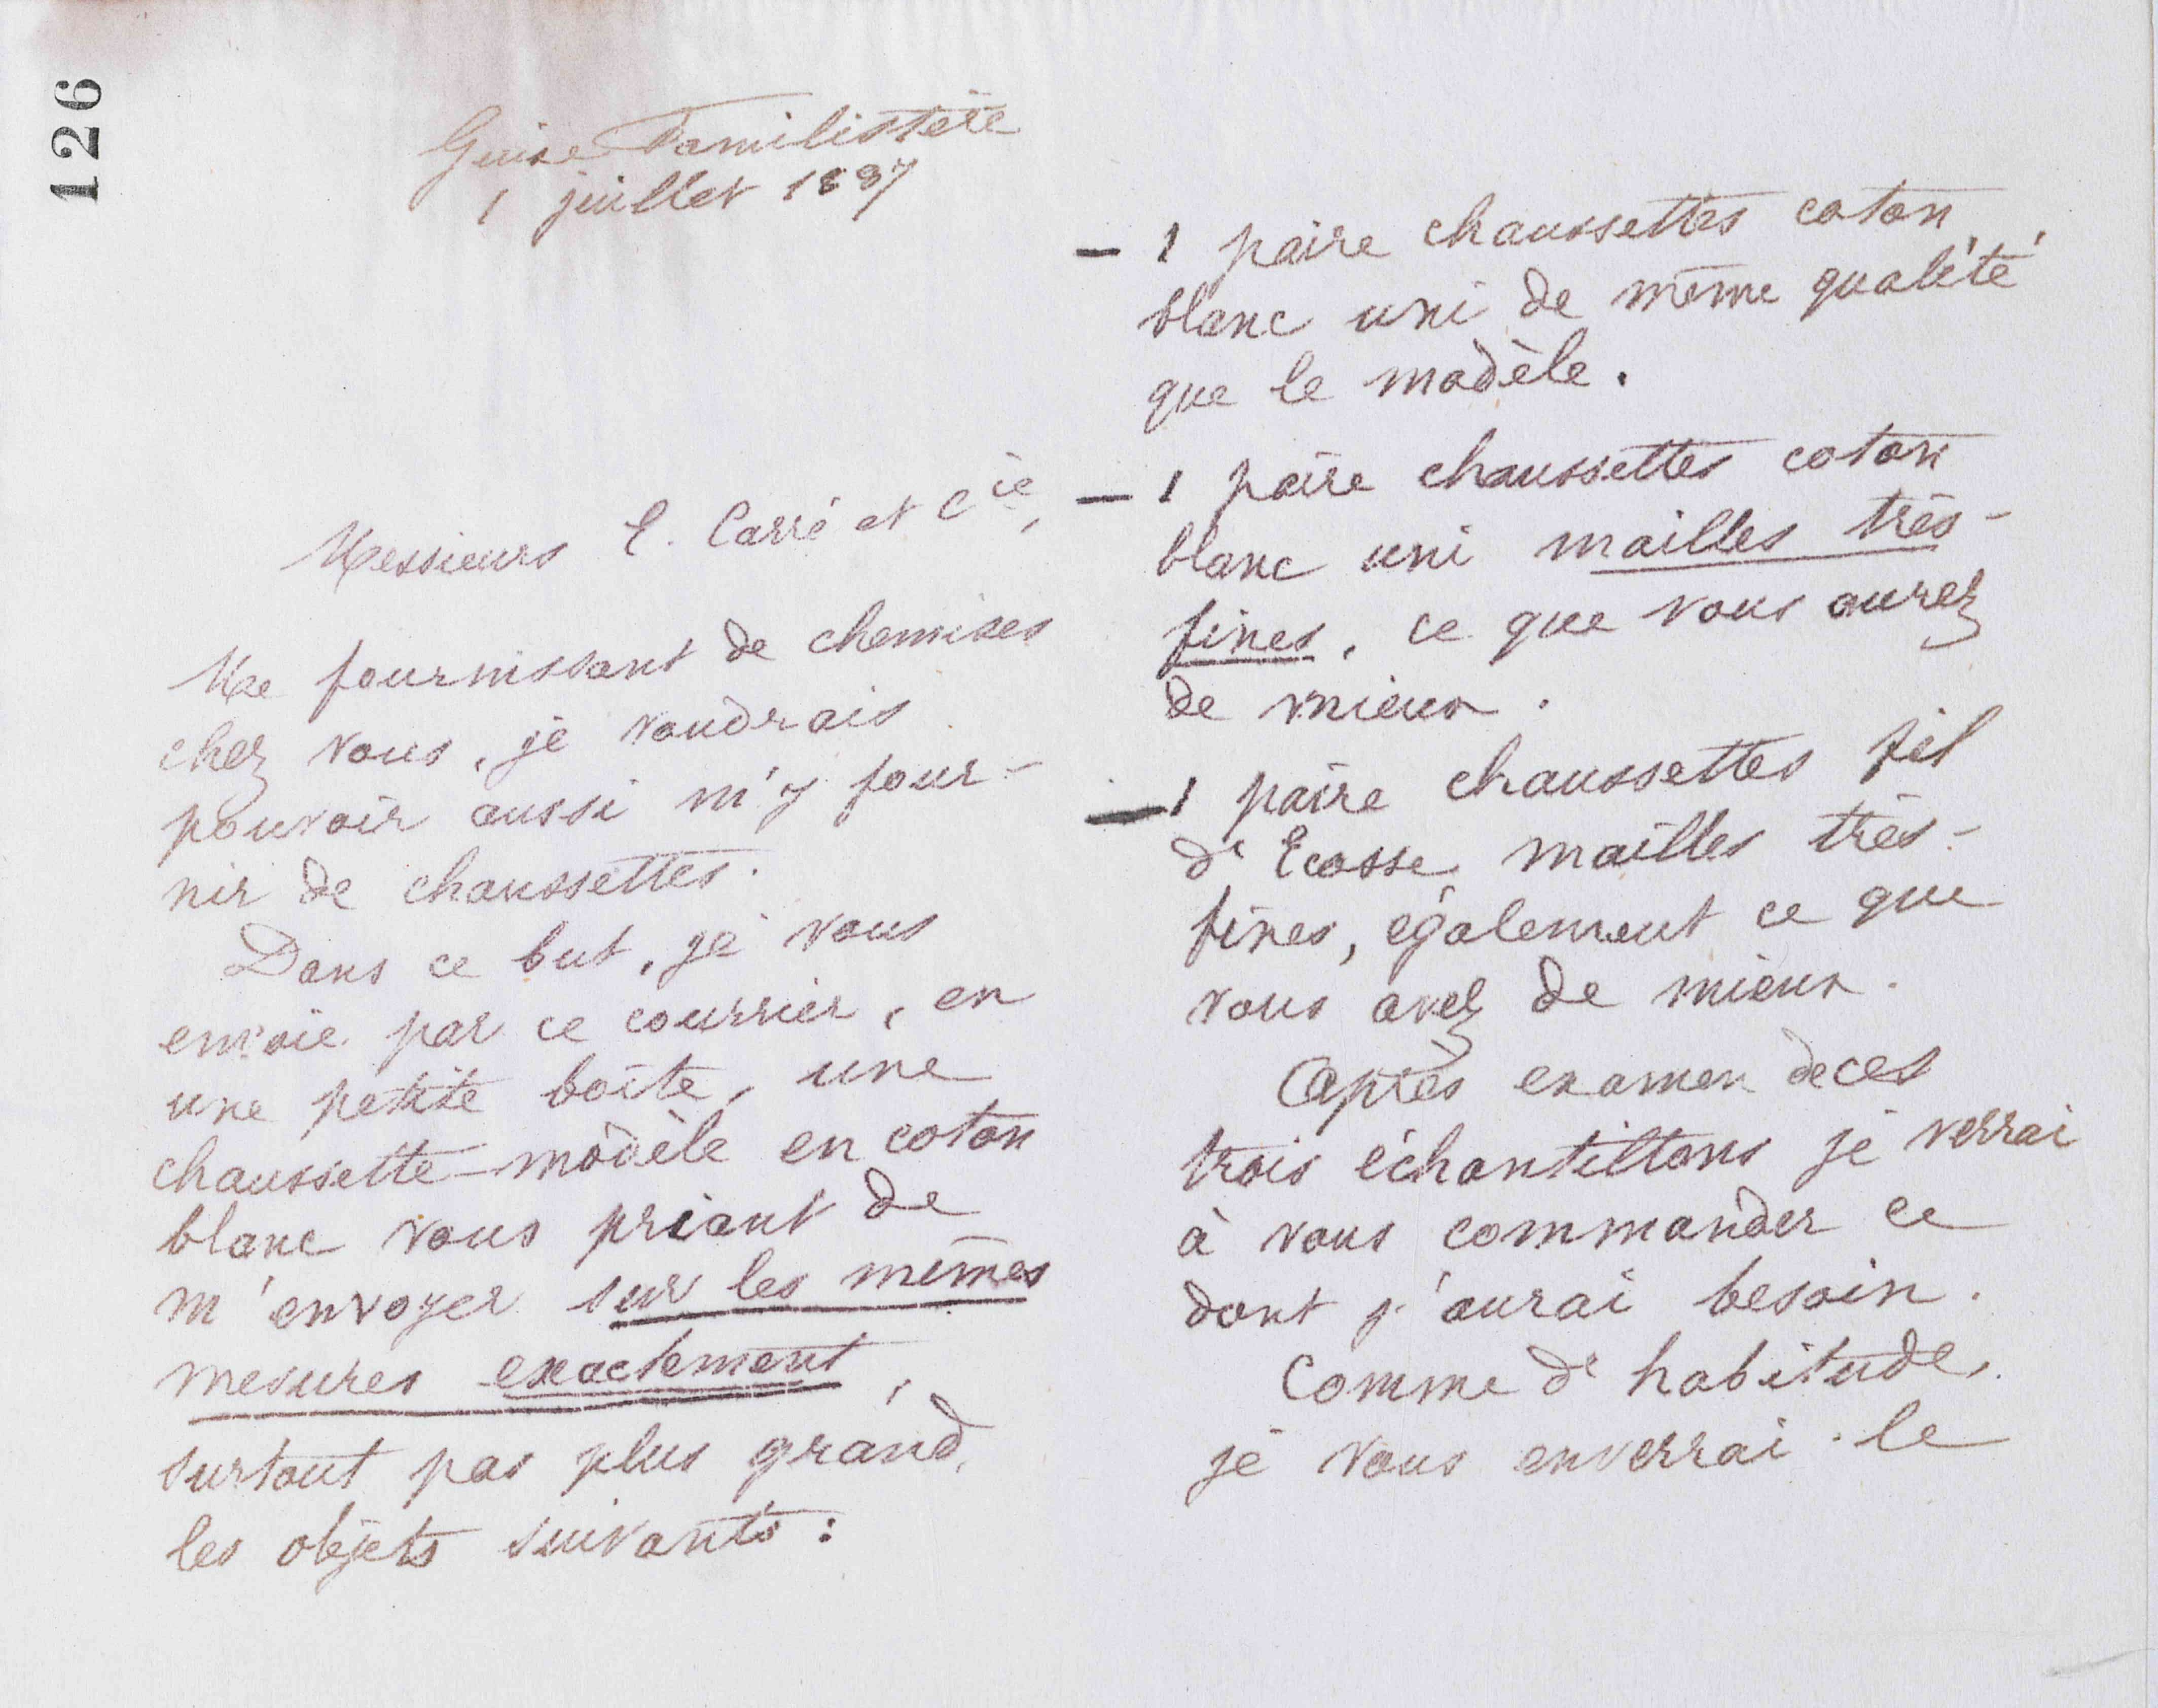 126
Guise Familistère
1 juillet 1887
Messieurs E. Carré et Cie,
Me fournissant de chemises
chez vous, je voudrais
pouvoir aussi m'y four-
nir de chaussettes.
Dans ce but, je vous
envoie par ce courrier, en
une petite boîte, une
chaussette-modèle en coton
blanc vous priant de
m'envoyer sur les mêmes
mesures exactement,
surtout pas plus grand,
les objets suivants :
— 1 paire chaussettes coton
blanc uni de même qualité
que le modèle.
— 1 paire chaussettes coton
blanc uni mailles très-
fines, ce que vous aurez
de mieux.
— 1 paire chaussettes fil
d'Ecosse mailles très-
fines, également ce que
vous avez de mieux.
Après examen de ces
trois échantillons je verrai
à vous commander ce
dont j'aurai besoin.
Comme d'habitude,
je vous enverrai le